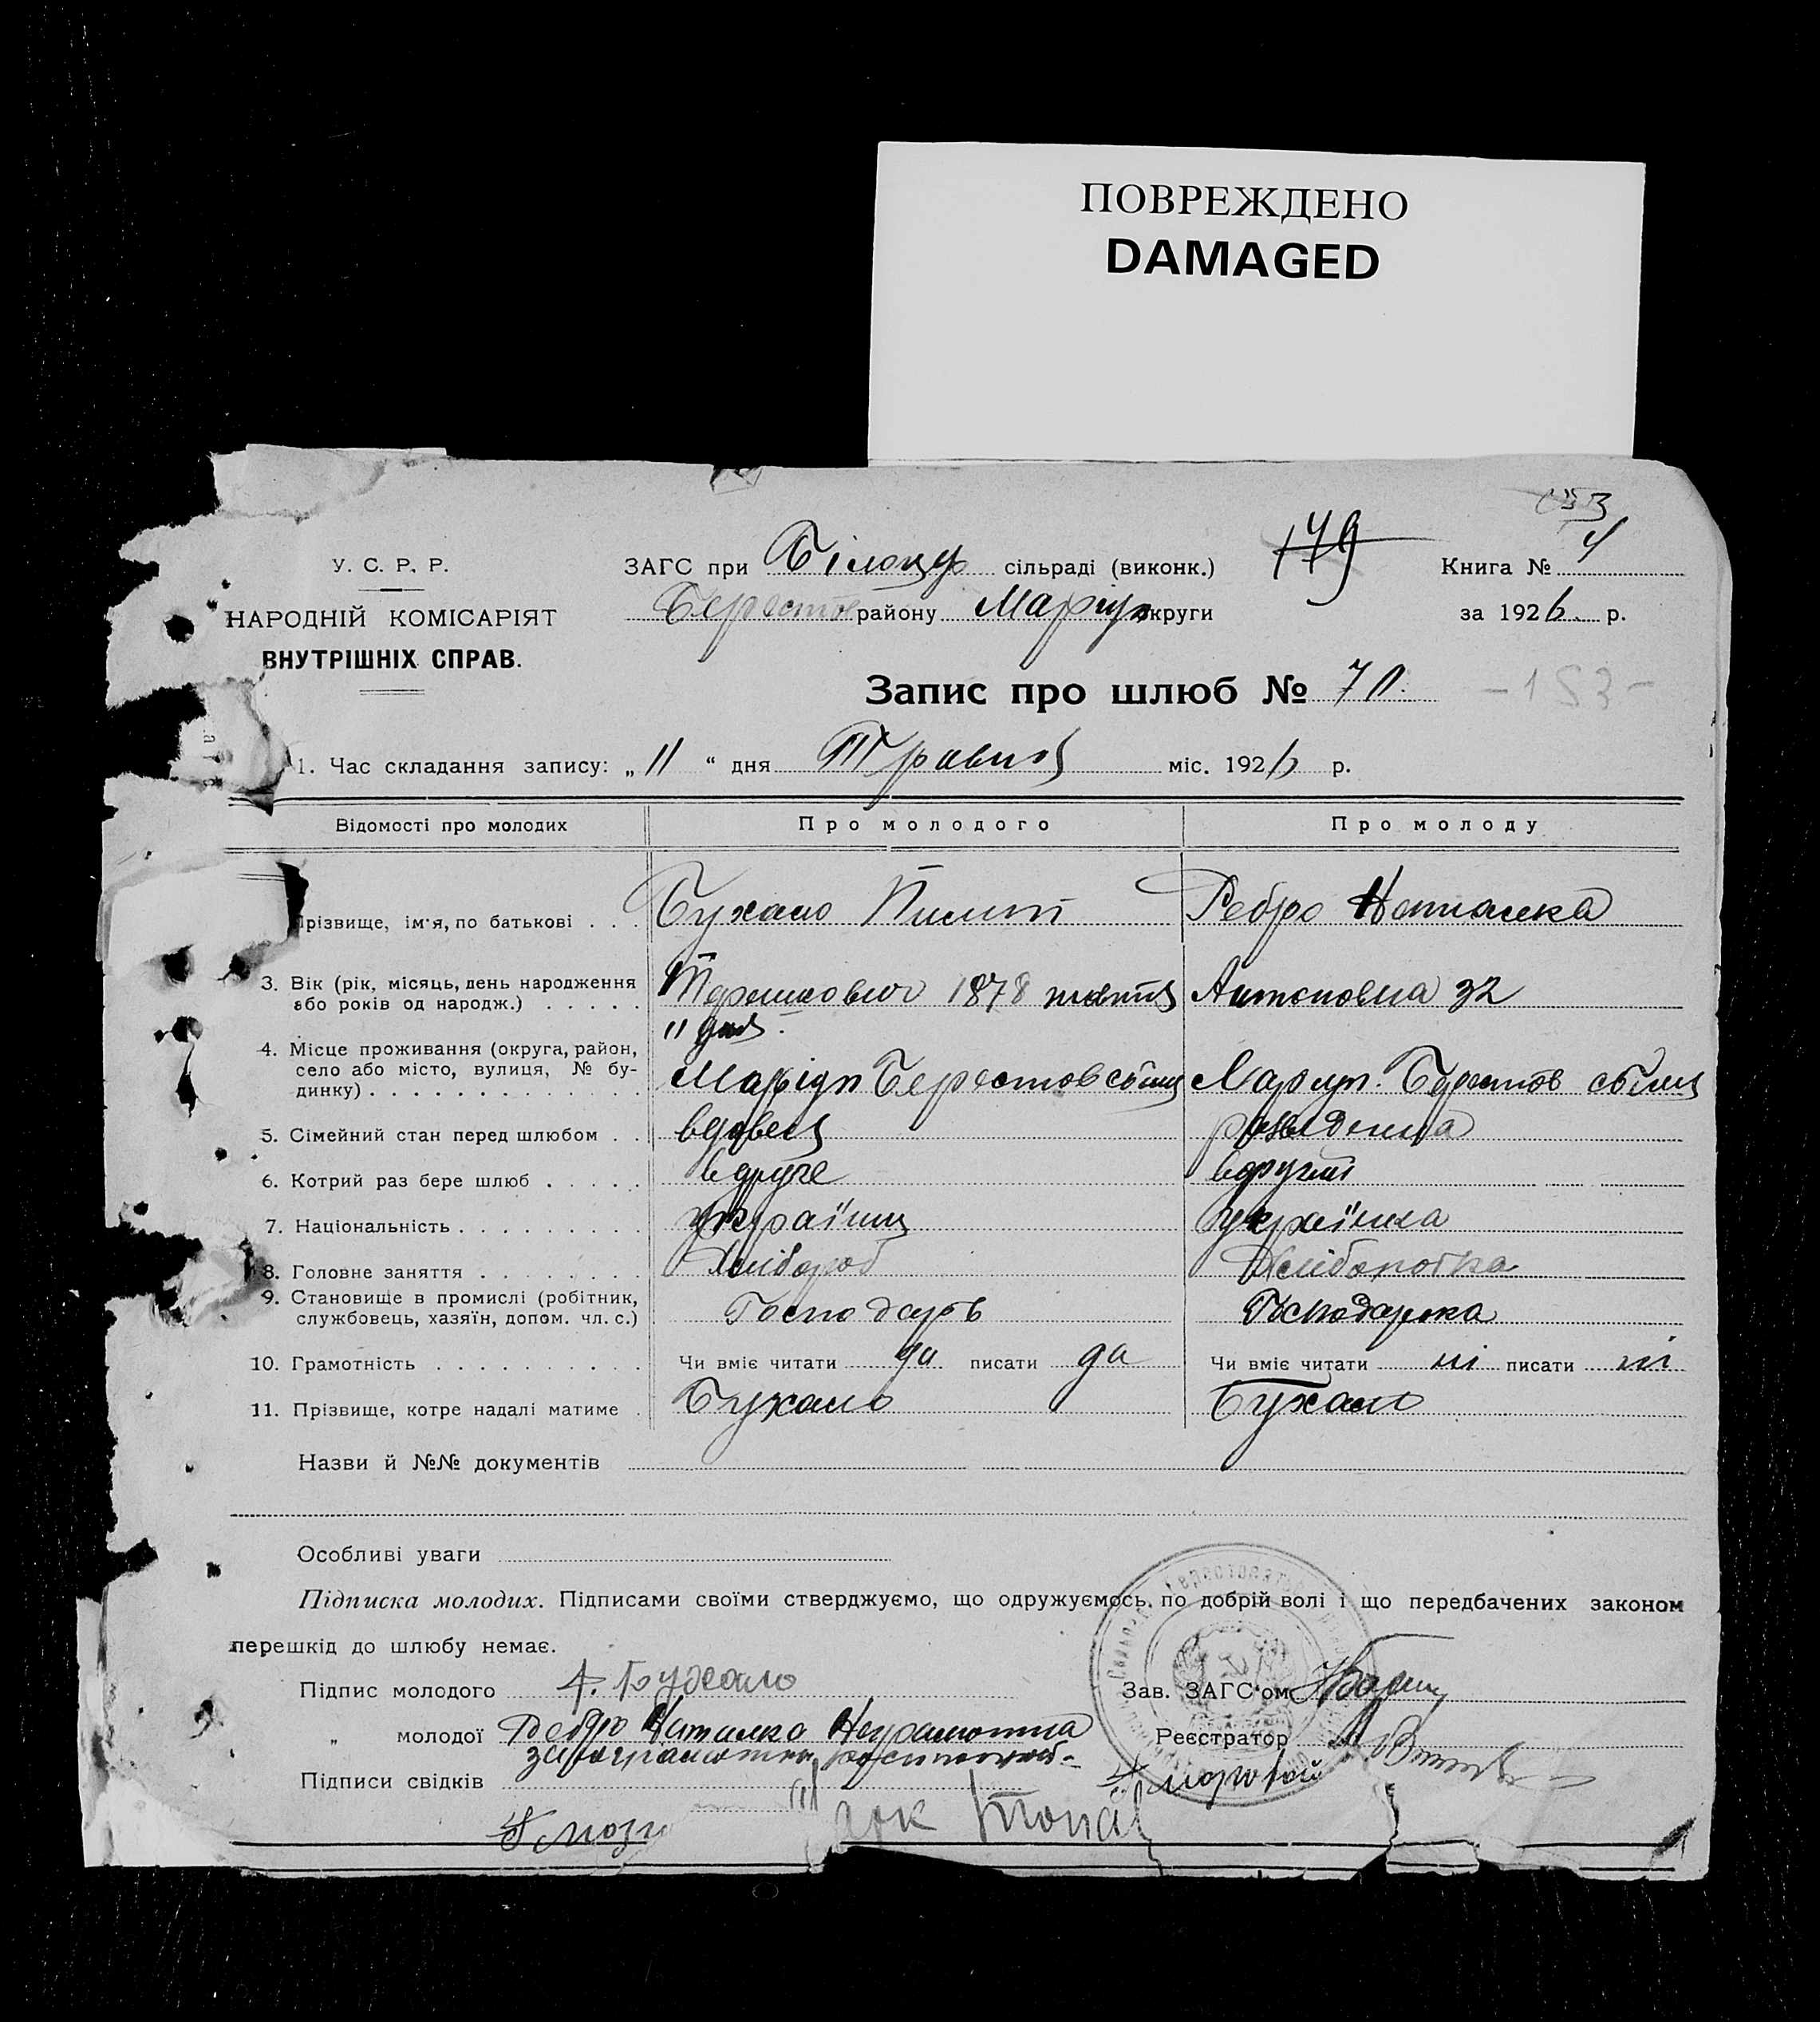 ПОВРЕЖДЕНО
DAMAGED
У. С. Р. Р.
НАРОДНІЙ КОМІСАРІЯТ
ВНУТРІШНІХ СПРАВ.
ЗАГС при Білоцер сільраді (виконк.)
Берестов району Маріуп округи
149
Книга № 4
за 1926 р.
Запис про шлюб № 70.
-153-
1. Час складання запису: „ 11 “ дня Травня міс. 1926 р.
Відомості про молодих
Про молодого
Про молоду
Прізвище, ім'я, по батькові . . .
Бухало Пилип
Ребро Наталка
3. Вік (рік, місяць, день народження або років од народж.) . . . . .
Терешкович 1878 жовтня
11 дня.
Антоновна 32
4. Місце проживання (округа, район, село або місто, вулиця, № будинку) . . . . . . . . . . . . .
Маріуп Берестов
Маріуп. Берестов
5. Сімейний стан перед шлюбом . .
вдовець
розведенна
6. Котрий раз бере шлюб . . . . .
вдруге
вдругий
7. Національність . . . . . . . . .
українець
українка
8. Головне заняття . . . . . . . .
Хлібороб
Хліборобка
9. Становище в промислі (робітник, службовець, хазяїн, допом. чл. с.)
Господарь
Господарка
10. Грамотність . . . . . . . . . .
Чи вміє читати да писати да
Чи вміє читати ні писати ні
11. Прізвище, котре надалі матиме .
Бухало
Бухало
Назви й №№ документів
Особливі уваги
Підписка молодих. Підписами своїми стверджуємо, що одружуємось по добрій волі і що передбачених законом
перешкід до шлюбу немає.
Підпис молодого Бухало
Зав. ЗАГС'ом
„ молодої Ребро Наталка Неграмотна
Реєстратор
Підписи свідків